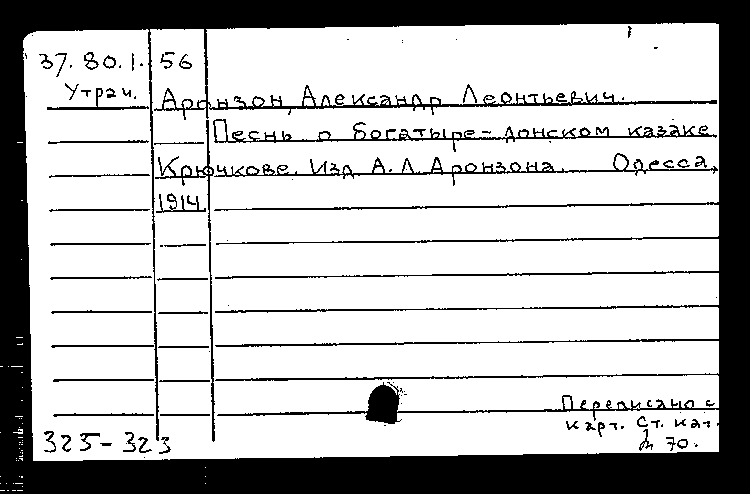 37.80.1.56
Утрач.
Аронзон, Александр Леонтьевич.
Песнь о богатыре-донском казаке
Крючкове. Изд. А.Л. Аронзона. Одесса,
1914
Переписано с
карт. Ст. кат.
70.
325-323